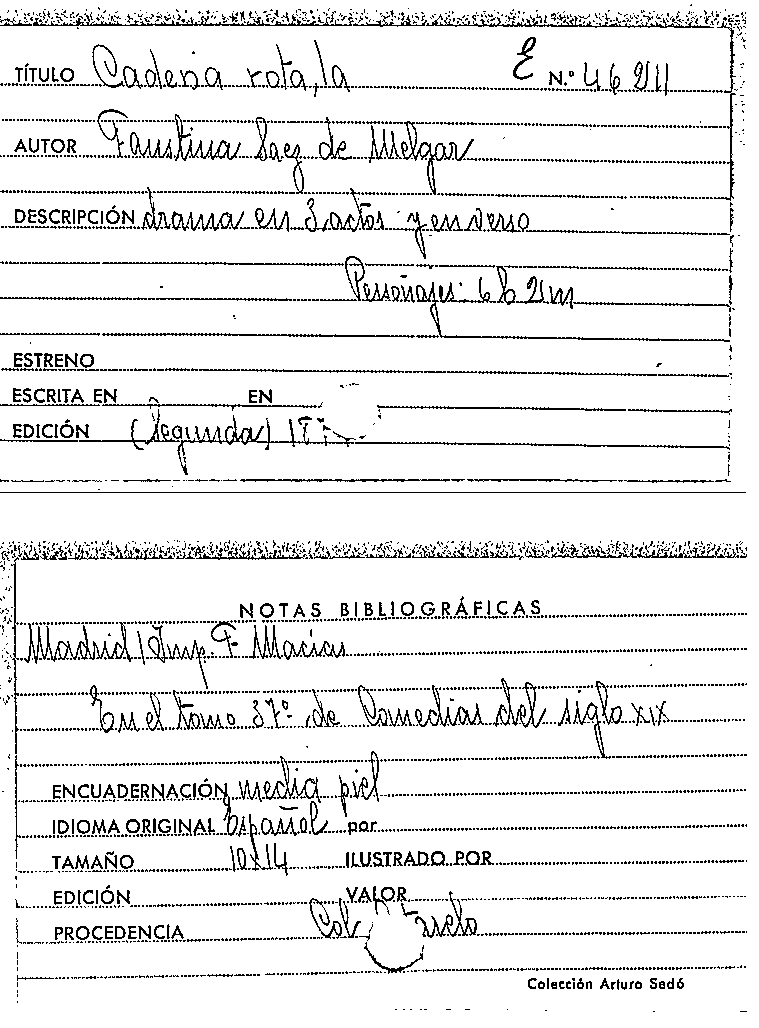 TÍTULO Cadena rota, la E N.º 46211
AUTOR Faustina Saez de Melgar
DESCRIPCIÓN drama en 3 actos y en verso
Personajes: 6 h 2 m
ESTRENO
ESCRITA EN EN
EDICIÓN (Segunda)
NOTAS BIBLIOGRÁFICAS
Madrid / Imp. F. Macias
En el tomo 37º de Comedias del siglo XIX
ENCUADERNACIÓN media piel
IDIOMA ORIGINAL Español por
TAMAÑO 10x14 ILUSTRADO POR
EDICIÓN VALOR
PROCEDENCIA Col
Colección Arturo Sedó